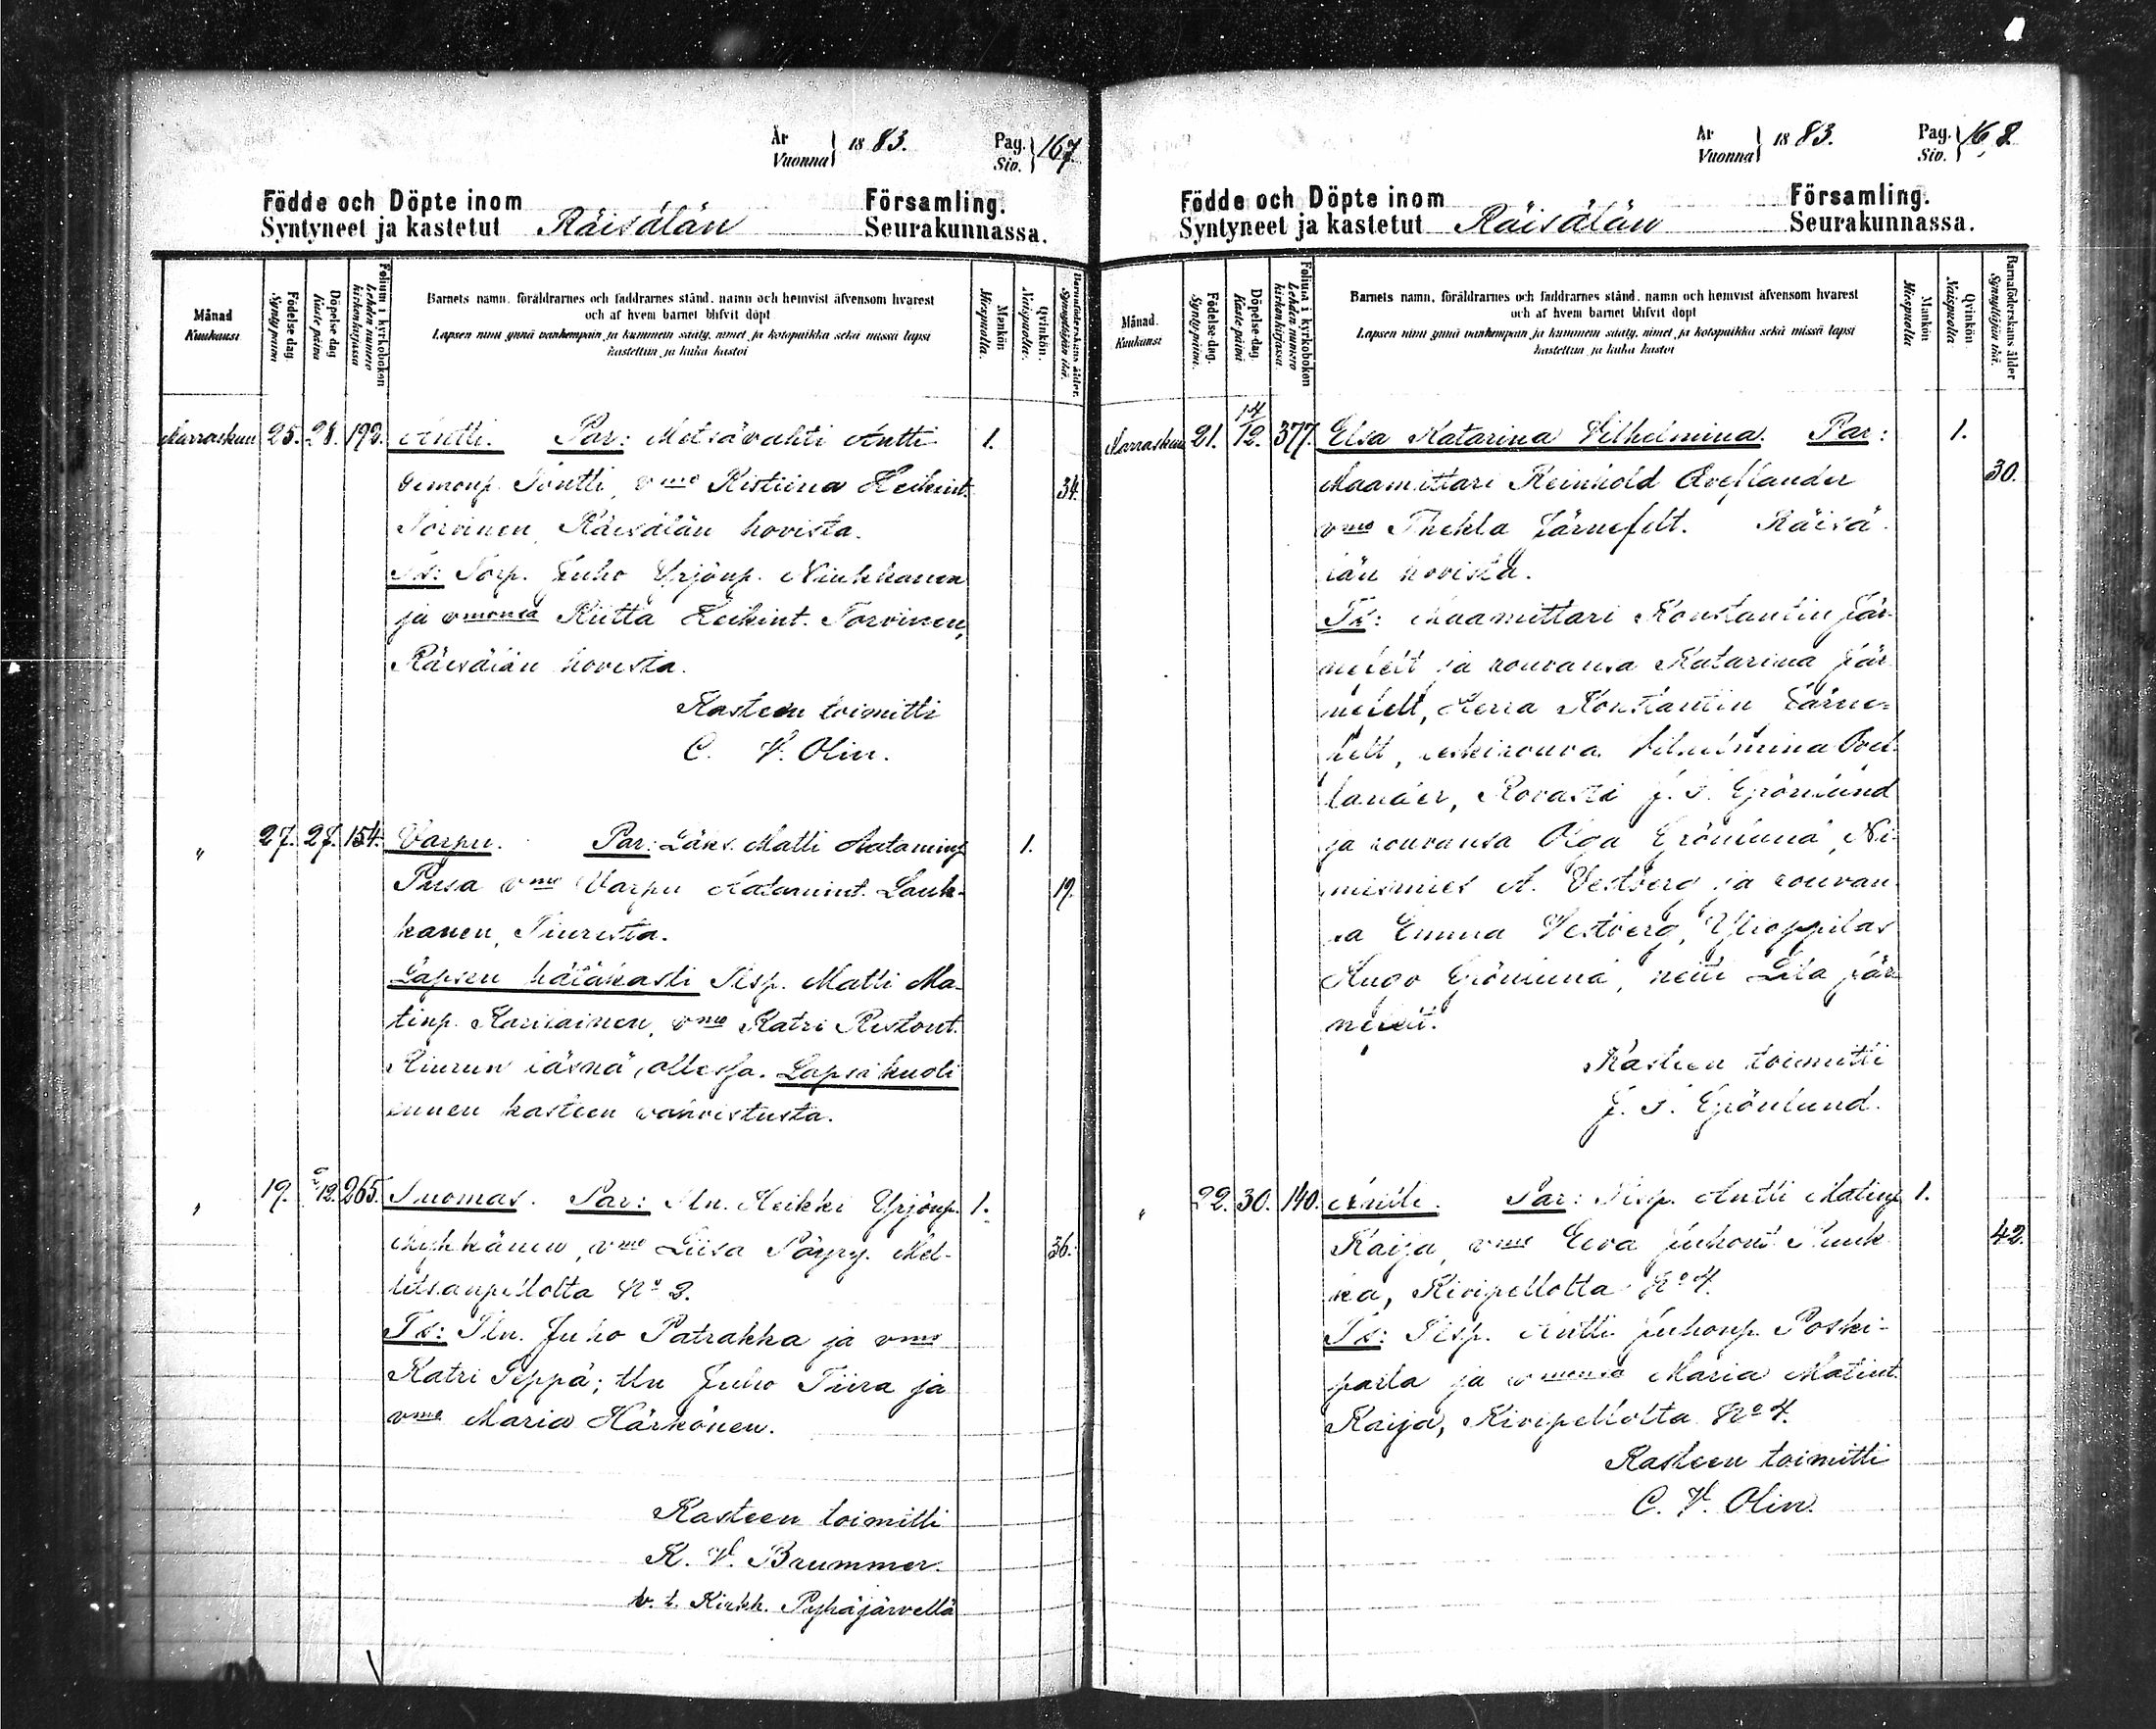 År
Vuonna } 1883. Pag.
Siv. } 167
Födde och Döpte inom Församling.
Syntyneet ja kastetut Räisälän Seurakunnassa.
Månad
Kuukausi
Födelse-dag
Syntypäivä
Döpelse-dag
Kastepäivä
Folium i kyrkoboken
Lehden numero
kirkonkirjassa
Barnets namn, föräldrarnes och faddrarnes stånd, namn och hemvist äfvensom hvarest
och af hvem barnet blifvit döpt
Lapsen nimi ynnä vanhempain ja kummein sääty, nimet ja kotopaikka sekä missä lapsi
kastettiin ja kuka kastoi
Mankön
Miespuolia.
Qvinkön.
Naispuolia.
Barnaföderskans ålder.
Synnyttäjän ikä.
Marraskuu 25. 28. 192. Antti. Par: Metsävahti Antti 1.
Simonp. Töntti, vmo Kristiina Heikint. 34.
Torvinen, Räisälän hovista.
Tk: Torp. Juho Yrjönp. Niukkanen
ja vmonsa Riitta Heikint. Torvinen,
Räisälän hovista.
Kasteen toimitti
C. V. Olin.
" 27. 27. 154. Varpu. Par: Läks. Matti Aataminp. 1.
Pusa vmo Varpu Aatamint. Lauk- 19.
kanen, Tiurista.
Lapsen hätäkasti Itsp. Matti Ma-
tinp. Karilainen, vmo Katri Ristont.
Kiurun läsnä ollessa. Lapsi kuoli
ennen kasteen vahvistusta.
" 19. 2/12. 265. Tuomas. Par: Tln. Heikki Yrjönp. 1.
Mykkänen, vmo Liisa Pöyry. Mel- 36.
litsanpellolta No 3.
Tk: Tln. Juho Patrakka ja vmo
Katri Seppä; tln Juho Tiira ja
vmo Maria Härkönen.
Kasteen toimitti
K. V. Brummer.
v. t. Kirkh. Pyhäjärvellä
År
Vuonna } 1883. Pag.
Siv. } 168.
Födde och Döpte inom Församling.
Syntyneet ja kastetut Räisälän Seurakunnassa.
Månad.
Kuukausi
Födelse-dag.
Syntypäivä.
Döpelse-dag.
Kastepäivä
Folium i kyrkoboken
Lehden numero
kirkonkirjassa.
Barnets namn, föräldrarnes och faddrarnes stånd, namn och hemvist äfvensom hvarest
och af hvem barnet blifvit döpt
Lapsen nimi ynnä vanhempain ja kummein sääty, nimet ja kotopaikka sekä missä lapsi
kastettiin ja kuka kastoi
Mankön
Miespuolia
Qvinkön
Naispuolia.
Barnaföderskans ålder
Synnyttäjän ikä.
Marraskuu 21. 14/12. 377. Elsa Katarina Vilhelmina. Par: 1.
Maamittari Reinhold Avellander 30.
vmo Thekla Järnefelt. Räisä-
län hovista.
Tk: Maamittari Konstantin Jär-
nefelt ja rouvansa Katarina Jär-
nefelt, Herra Konstantin Järne-
felt, leskirouva Vilhelmina Avel-
lander, Rovasti J. I. Grönlund
ja rouvansa Olga Grönlund, Ni-
mismies A. Vestberg ja rouvan-
sa Emma Vestberg, Ylioppilas
Hugo Grönlund, neiti Lila Jär-
nefelt.
Kasteen toimitti
J. I. Grönlund.
" 22. 30. 140. Antti. Par: Itsp. Antti Matinp. 1.
Kaija, vmo Eeva Juhont. 42.
Kivipellolta No 4.
Tk: Itsp. Antti Juhonp. Poski-
parta ja vmonsa Maria Matint.
Kaija, Kivipellolta No 4.
Kasteen toimitti
C. V. Olin.